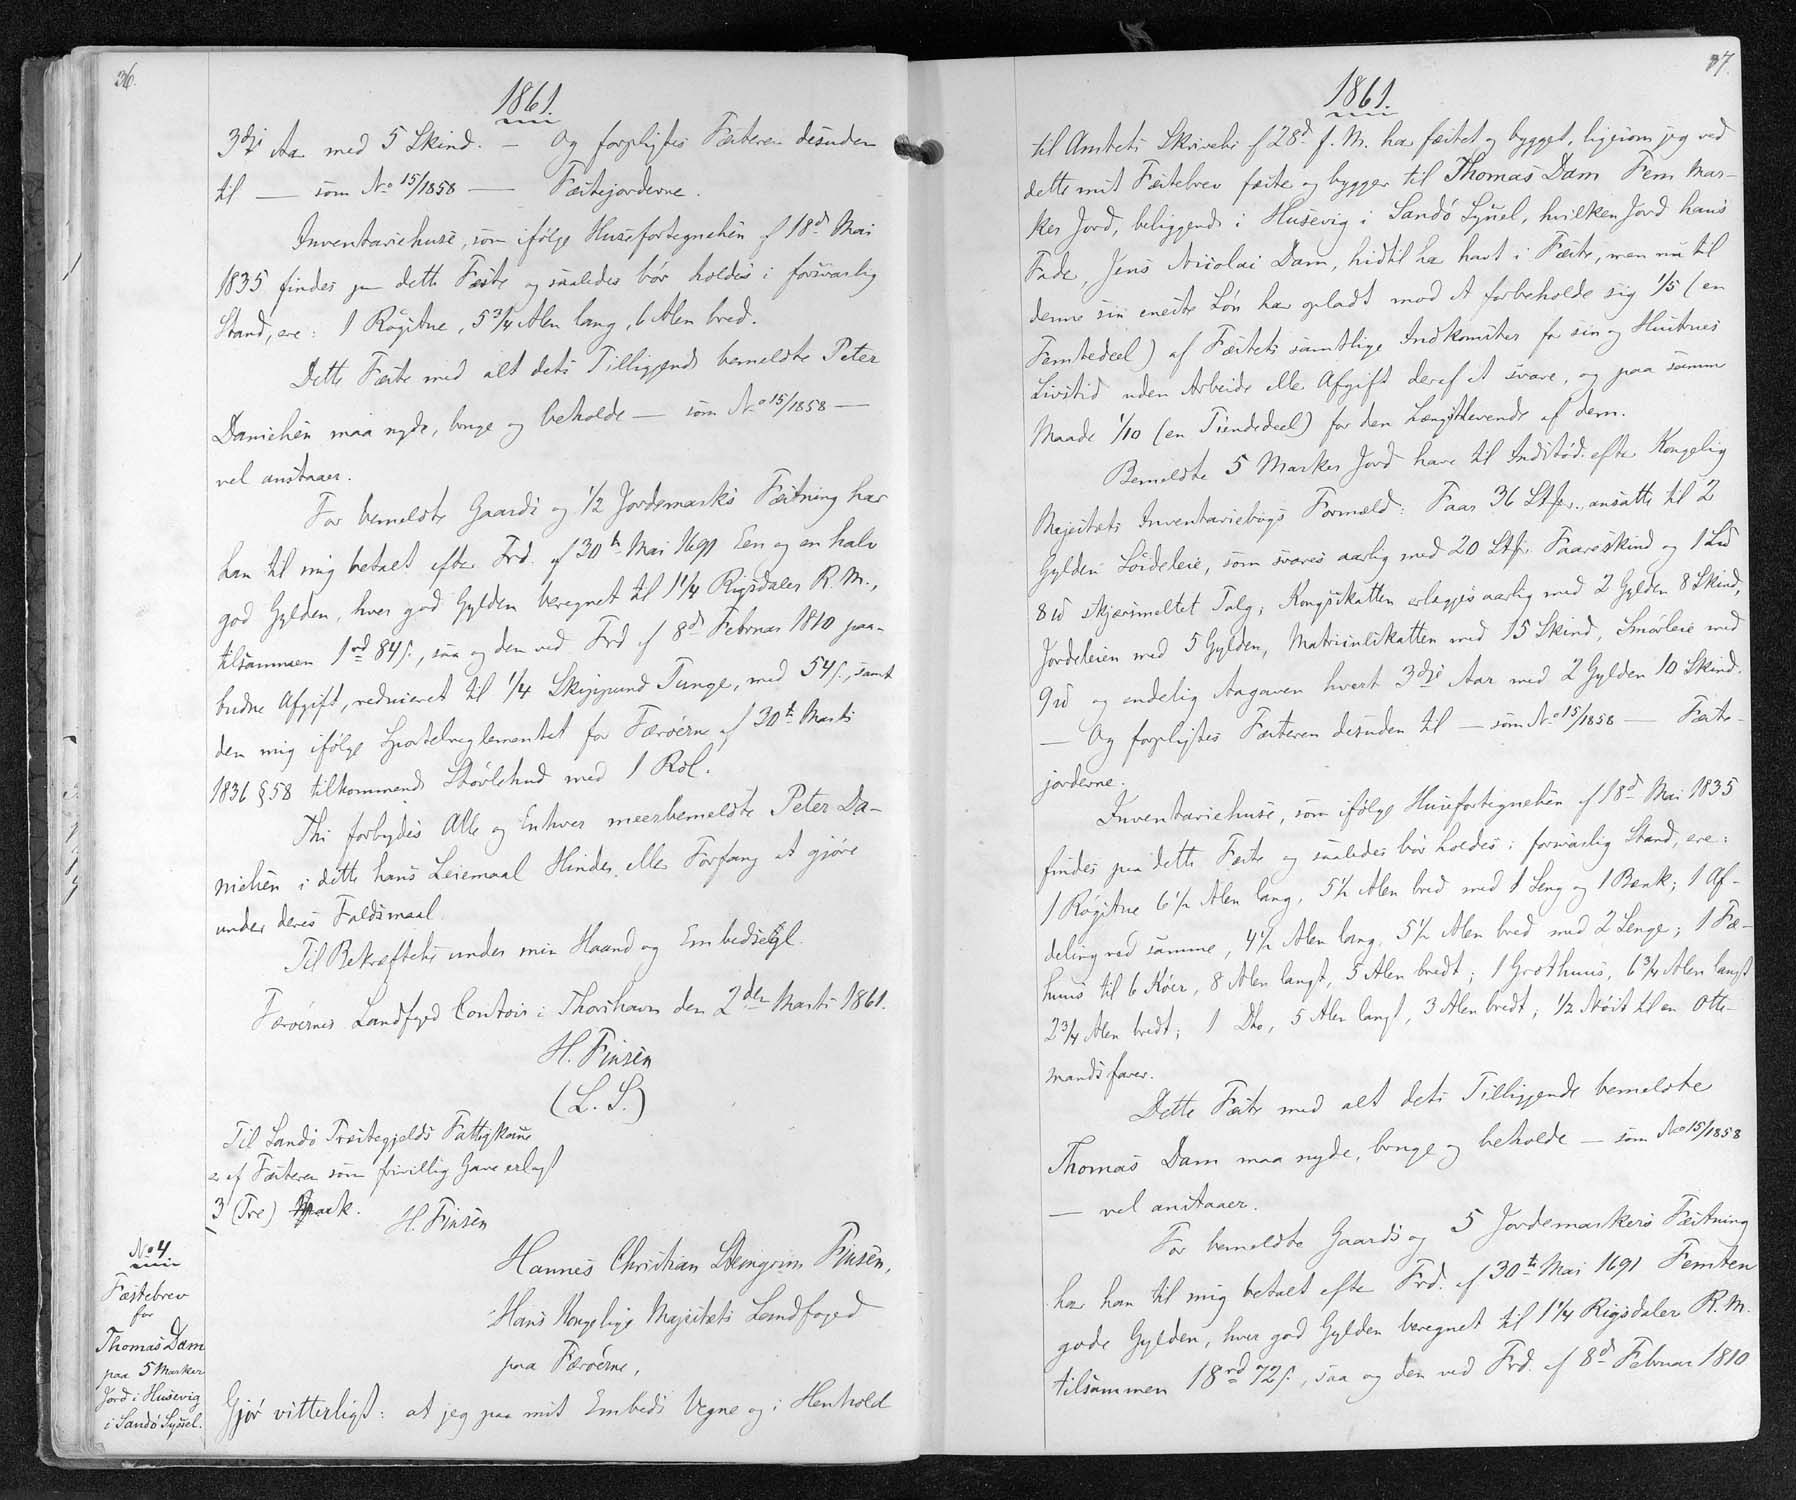 36.
1861.
3die Aar med 5 Skind. — Og forpligtes Fæsteren desuden
til — som No 15/1858 — Fæstejorderne.
Inventariehuse, som ifølge Husefortegnelsen af 18d Mai
1835 findes paa dette Fæste og saaledes bør holdes i forsvarlig
Stand, ere: 1 Røgstue, 5 3/4 Alen lang, 6 Alen bred.
Dette Fæste med alt dets Tilliggende bemeldte Peter
Danielsen maa nyde, bruge og beholde — som No 15/1858 —
vel anstaaer.
For bemeldte Gaards og 1/2 Jordemarks Fæstning har
han til mig betalt efter Frd. af 30te Mai 1691 Een og en halv
god Gylden, hver god Gylden beregnet til 1 1/4 Rigsdaler R. M.,
tilsammen 1rd 84 s., saa og den ved Frd af 8d Februar 1810 paa-
budne Afgift, reduceret til 1/4 Skippund Tunge, med 54 s., samt
den mig ifølge Sportelreglementet for Færøerne af 30te Marts
1836 § 58 tilkommende Støvlehud med 1 Rdl.
Thi forbydes Alle og Enhver meerbemeldte Peter Da-
nielsen i dette hans Leiemaal Hinder eller Forfang at gjøre
under deres Faldsmaal.
Til Bekræftelse under min Haand og Embedssegl.
Færøernes Landfoged Contoir i Thorshavn den 2den Marts 1861.
H. Finsen
(L. S.)
Til Sandø Præstegjelds Fattigkasse
er af Fæsteren som frivillig Gave erlagt
3 (Tre) Mark.
H. Finsen
No 4.
Fæstebrev
for
Thomas Dam
paa 5 Marker
Jord i Husevig
i Sandø Syssel.
Hannes Christian Steingrim Finsen,
Hans Kongelige Majestæts Landfoged
paa Færøerne,
Gjør vitterligt: at jeg paa mit Embeds Vegne og i Henhold
37.
1861.
til Amtets Skrivelse af 28d f. M. har fæstet og bygget, ligesom jeg ved
dette mit Fæstebrev fæster og bygger til Thomas Dam Fem Mar-
ker Jord, beliggende i Husevig i Sandø Syssel, hvilken Jord hans
Fader, Jens Nicolai Dam, hidtil har havt i Fæste, men nu til
denne sin eneste Søn har opladt mod at forbeholde sig 1/5 (en
Femtedeel) af Fæstets samtlige Indkomster for sin og Hustrues
Livstid uden Arbeide eller Afgift deraf at svare, og paa samme
Maade 1/10 (en Tiendedeel) for den Længstlevende af dem.
Bemeldte 5 Marker Jord have til Indstød efter Kongelig
Majestæts Inventariebogs Formeld: Faar 36 Stkr., ansatte til 2
Gylden Søideleie, som svares aarlig med 20 Stkr Faareskind og 1 L℔
8 ℔ skjærsmeltet Talg; Kongsskatten erlægges aarlig med 2 Gylden 8 Skind,
Jordeleien med 5 Gylden, Matriculskatten med 15 Skind, Smørleie med
9 ℔ og endelig Aagaven hvert 3die Aar med 2 Gylden 10 Skind.
— Og forpligtes Fæsteren desuden til — som No 15/1858 — Fæste-
jorderne.
Inventariehuse, som ifølge Husefortegnelsen af 18d Mai 1835
findes paa dette Fæste og saaledes bør holdes i forsvarlig Stand, ere:
1 Røgstue 6 1/2 Alen lang, 5 1/2 Alen bred med 1 Seng og 1 Bænk; 1 Af-
deling ved samme, 4 1/2 Alen lang, 5 1/2 Alen bred med 2 Senge; 1 Fæ-
huus til 6 Køer, 8 Alen langt, 5 Alen bredt; 1 Grothuus, 6 3/4 Alen langt
2 3/4 Alen bredt; 1 Dto, 5 Alen langt, 3 Alen bredt; 1/2 Nøst til en Otte-
mandsfarer.
Dette Fæste med alt dets Tilliggende bemeldte
Thomas Dam maa nyde, bruge og beholde — som No 15/1858
— vel anstaaer.
For bemeldte Gaards og 5 Jordemarkers Fæstning
har han til mig betalt efter Frd. af 30te Mai 1691 Femten
gode Gylden, hver god Gylden beregnet til 1 1/4 Rigsdaler R. M.
tilsammen 18rd 72 s., saa og den ved Frd. af 8d Februar 1810